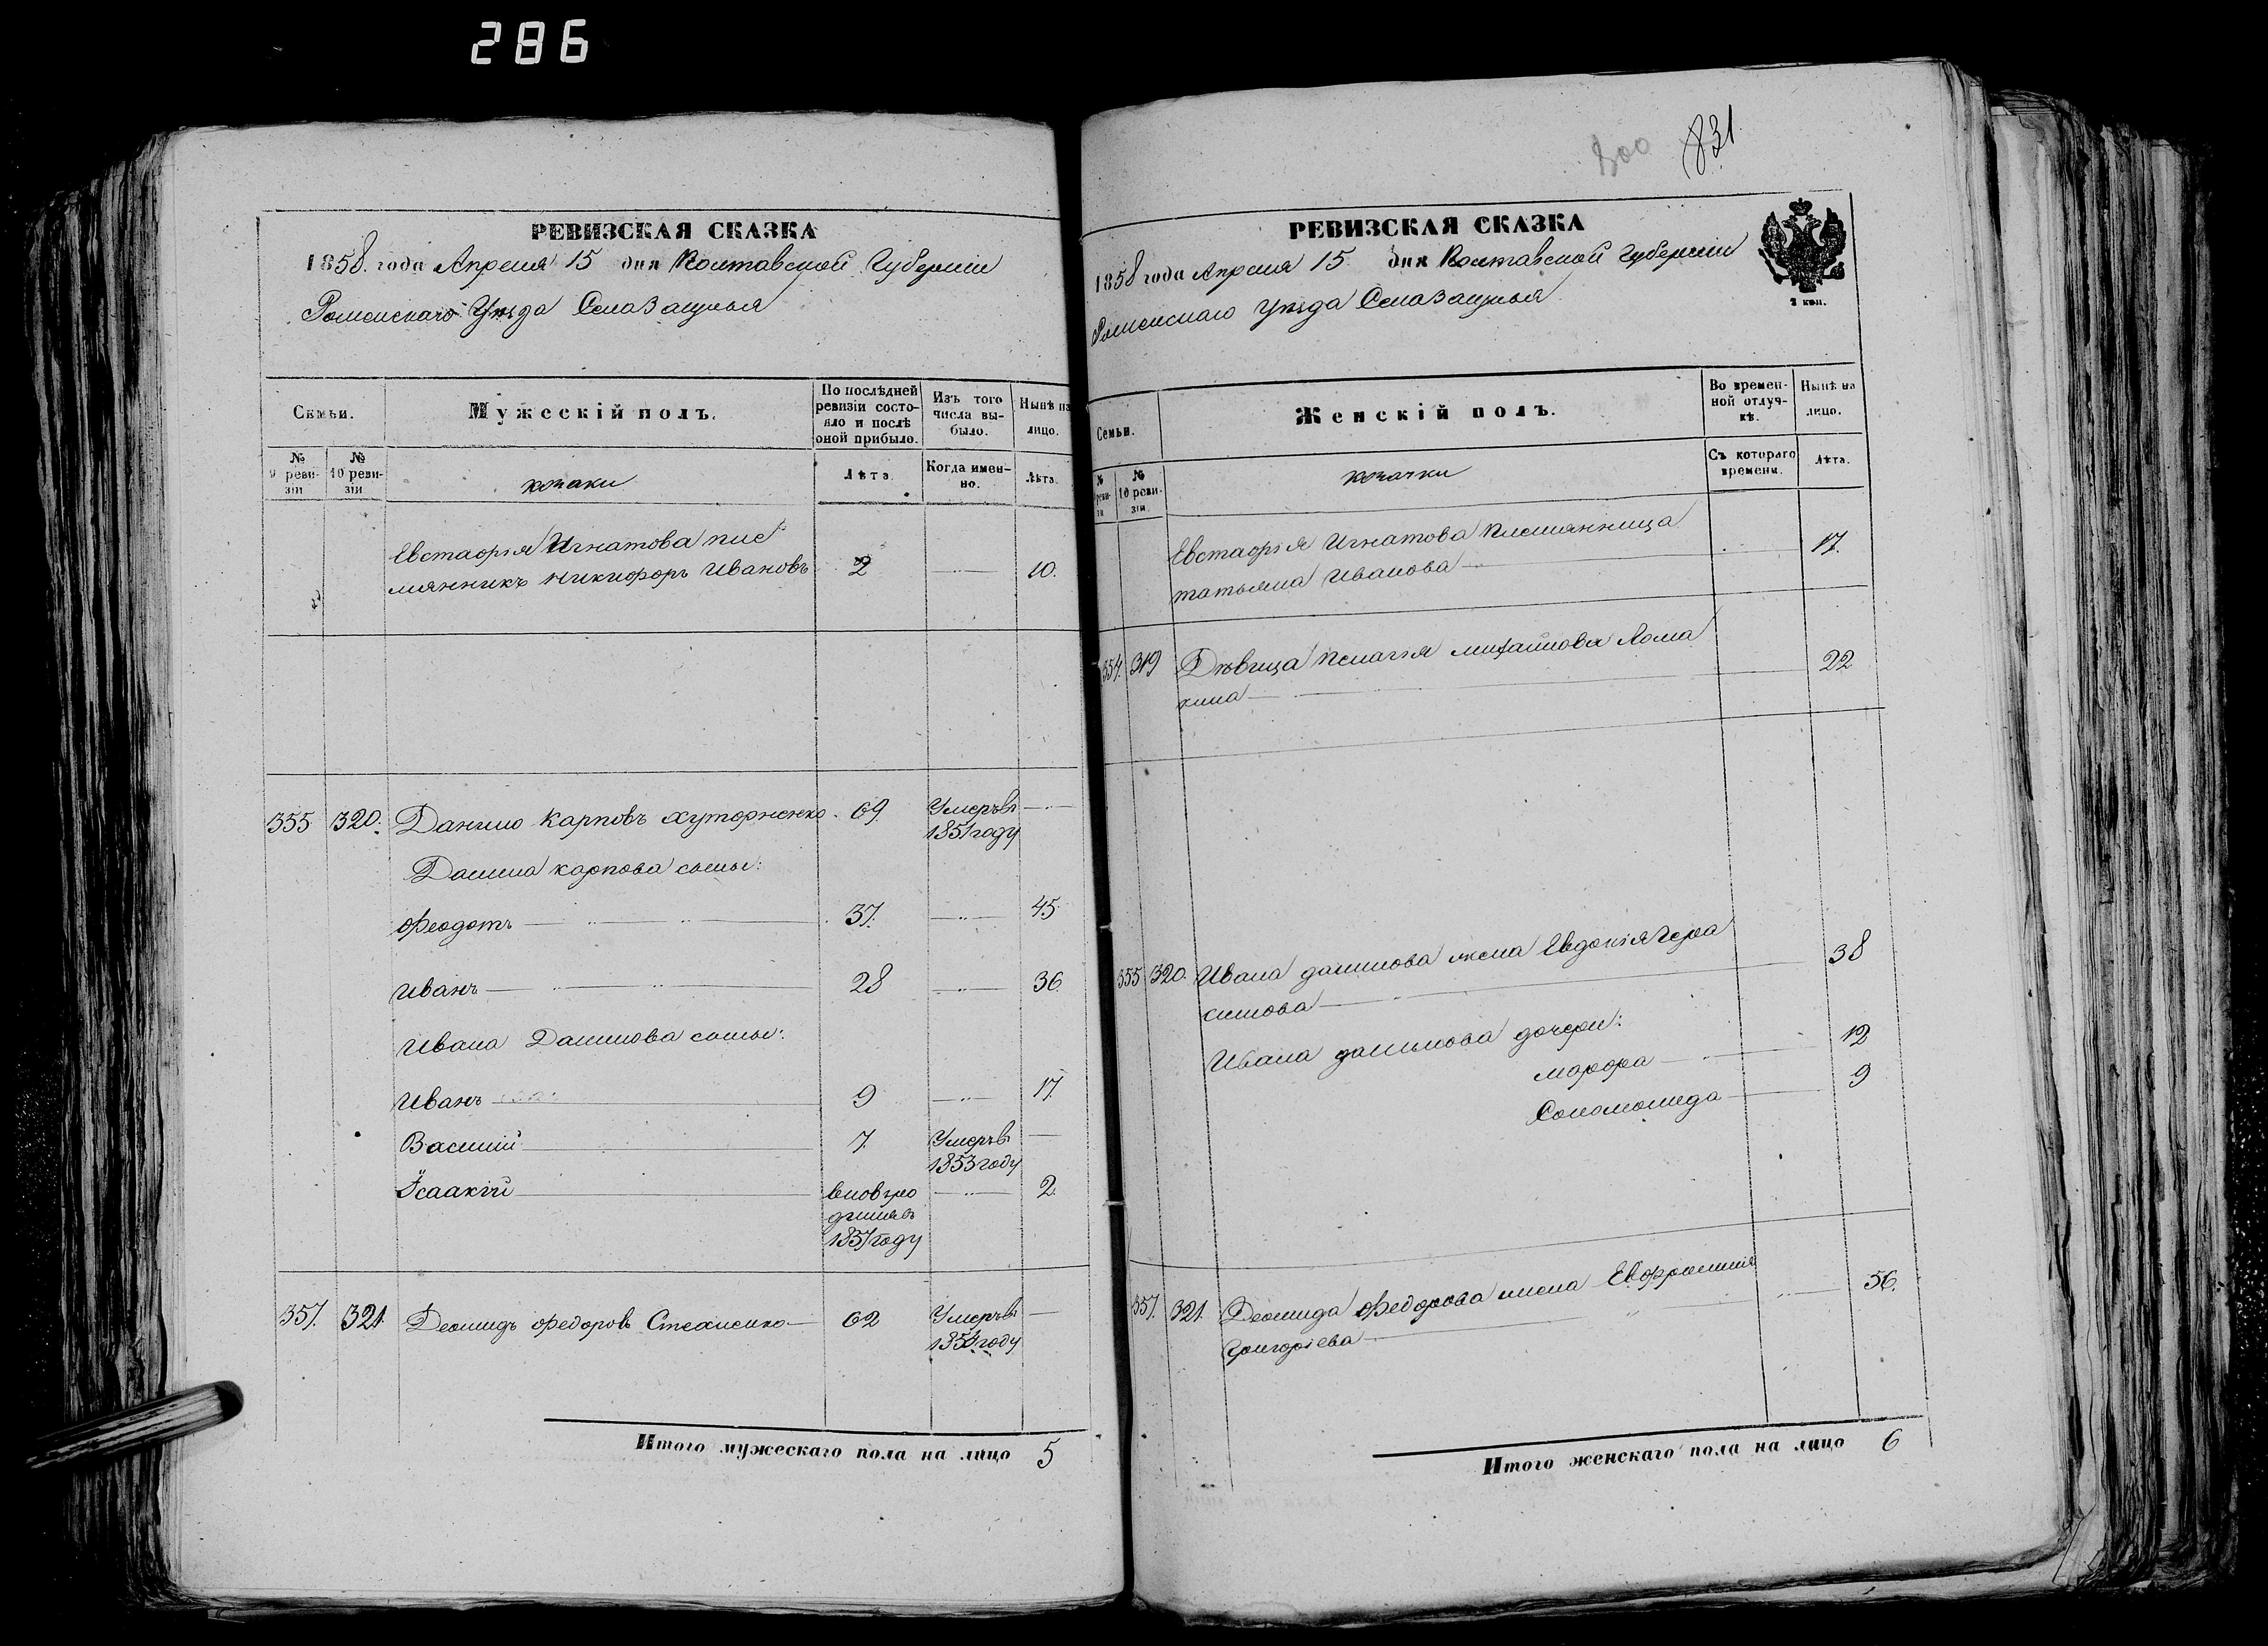 286
300 831
РЕВИЗСКАЯ СКАЗКА
1858 года Апреля 15 дня Полтавской Губерніи
Роменскаго Уѣзда Села Зацѣпья
Семьи.
Мужескій полъ.
По послѣдней ревизіи состояло и послѣ оной прибыло.
Изъ того числа выбыло.
Нынѣ на лицо.
№ 9 ревизіи
№ 10 ревизіи
козаки
Лѣта
Когда именно.
Лѣта
Евстафія Игнатова пле
мянникъ Никифоръ Ивановъ 2 10.
355 320. Данило Карповъ Хуторненко 69. Умеръ въ
1851 году
Данила Карпова сыны:
Феодотъ 37. 45
Иванъ 28 36.
Ивана Данилова сыны:
Иванъ 9 17.
Василій 7. Умеръ въ
1853 году
Ісаакій вновь ро 2.
дился въ
1857 году
357. 321. Деомидъ Федоровъ Стехненко 62 Умеръ въ
1854 году
Итого мужескаго пола на лицо 5
РЕВИЗСКАЯ СКАЗКА
1858 года Апреля 15 дня Полтавской Губерніи
Роменскаго Уѣзда Села Зацѣпья
2 коп.
Семьи.
Женскій полъ.
Во временной отлучкѣ.
Нынѣ на лицо.
№ ревизіи
№ 10 ревизіи.
козачки
Съ котораго времени.
Лѣта.
Евстафія Игнатова племянница
татьяна Иванова 17.
354. 319 Дѣвица Пелагія Михайлова Лома
кина 22
355 320. Ивана Данилова жена Евдокія Гера
симова 38
Ивана Данилова дочери:
Марфа 12
Соломонида 9
357. 321. Деомида Федорова жена Евфросинія
Григоріева 56.
Итого женскаго пола на лицо 6